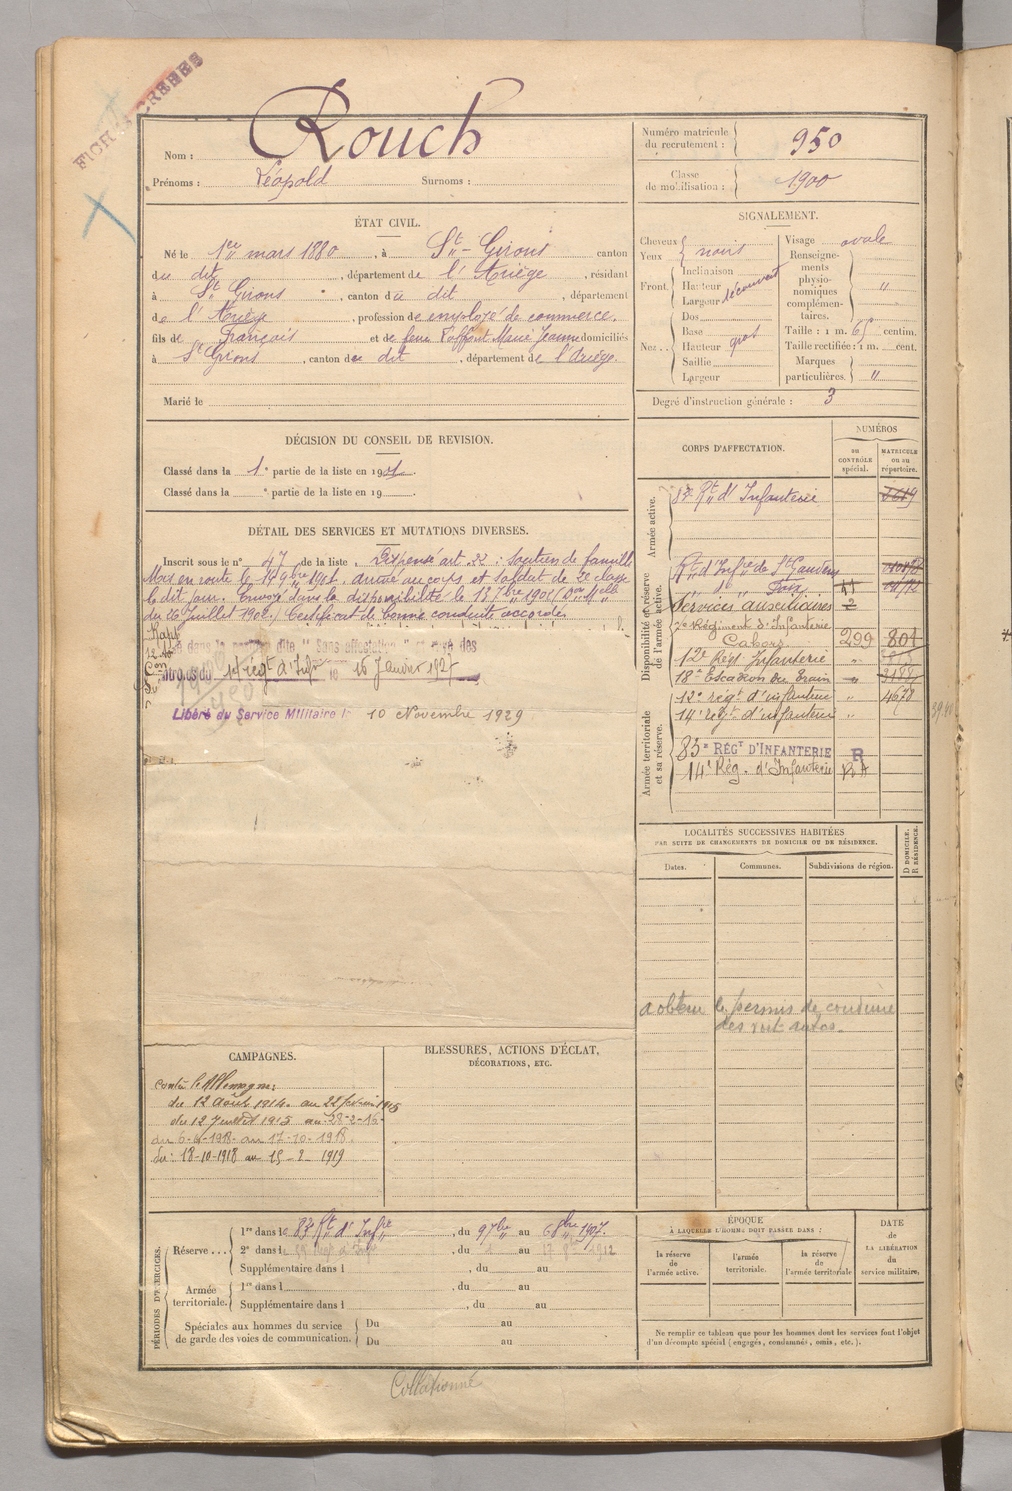 FICHES CREEES
Rouch
Nom :
Prénoms : Léopold Surnoms :
Numéro matricule
du recrutement : 950
Classe
de mobilisation : 1900
ÉTAT CIVIL.
Né le 1er mars 1880, à St-Girons canton
du dit, département de l'Ariège, résidant
à St Girons, canton du dit, département
de l'Ariège, profession de employé de commerce.
fils de François et de feue Marie Jeanne domiciliés
à St Girons, canton du dit, département de l'Ariège.
Marié le
SIGNALEMENT.
Cheveux
Yeux noirs
Front. Inclinaison
Hauteur
Largeur découvert
Nez. Dos
Base
Hauteur gros
Saillie
Largeur
Visage ovale
Renseigne-
ments
physio-
nomiques
complémen-
taires. "
Taille : 1 m. 65 centim.
Taille rectifiée : 1 m. cent.
Marques
particulières. "
Degré d'instruction générale : 3
DÉCISION DU CONSEIL DE REVISION.
Classé dans la 1e partie de la liste en 1901.
Classé dans la e partie de la liste en 19
DÉTAIL DES SERVICES ET MUTATIONS DIVERSES.
Inscrit sous le n° 47 de la liste. Dispensé art. 22 : soutien de famille
Mis en route le 14 9bre 1901. arrivé au corps et soldat de 2e classe
le dit jour. Envoyé dans la disponibilité le 13 7bre 1902
du 26 Juillet 1902.) Certificat de bonne conduite accordé
dans la position dite " Sans affectation " et rayé des
contrôles du 14e régt d'Infie le 16 Janvier 1927
Libéré du Service Militaire le 10 Novembre 1929
CORPS D'AFFECTATION.
NUMÉROS
DU
CONTRÔLE
spécial.
MATRICULE
ou au
répertoire.
Armée active.
83e Rt d'Infanterie
Disponibilité et réserve
de l'armée active.
Rt d'Infie de St Gaudens
" d° " Foix
Services auxiliaires 2
7e Régiment d'Infanterie
Cahors 299 804
12e Régt Infanterie "
18e Escadron du Train "
Armée territoriale
et sa réserve.
12e régt d'infanterie " 4678
14e régt d'infanterie "
83e RÉGT D'INFANTERIE R
14e Rég. d'Infanterie
LOCALITÉS SUCCESSIVES HABITÉES
PAR SUITE DE CHANGEMENTS DE DOMICILE OU DE RÉSIDENCE.
Dates. Communes. Subdivisions de région.
D DOMICILE.
R RÉSIDENCE.
a obtenu le permis de conduire
des voit. autos.
CAMPAGNES.
contre l'Allemagne:
du 12 Août 1914 au 22 février 1915
du 12 Juillet 1915 au 28-2-16
du 6-4-1918 au 17-10-1918.
du : 18-10-1918 au 15-2 1919
BLESSURES, ACTIONS D'ÉCLAT,
DÉCORATIONS, ETC.
PÉRIODES D'EXERCICES.
Réserve... 1re dans le 83e Rt d'Infie, du 9 7bre au 6 8bre 1907.
2e dans le , du au 1912
Supplémentaire dans l , du au
Armée
territoriale. 1re dans l , du au
Supplémentaire dans l , du au
Spéciales aux hommes du service
de garde des voies de communication. Du au
Du au
ÉPOQUE
À LAQUELLE L'HOMME DOIT PASSER DANS :
la réserve
de
l'armée active.
l'armée
territoriale.
la réserve
de
l'armée territoriale
DATE
de
LA LIBÉRATION
du
service militaire.
Ne remplir ce tableau que pour les hommes dont les services font l'objet
d'un décompte spécial (engagés, condamnés, omis, etc.).
Collationné